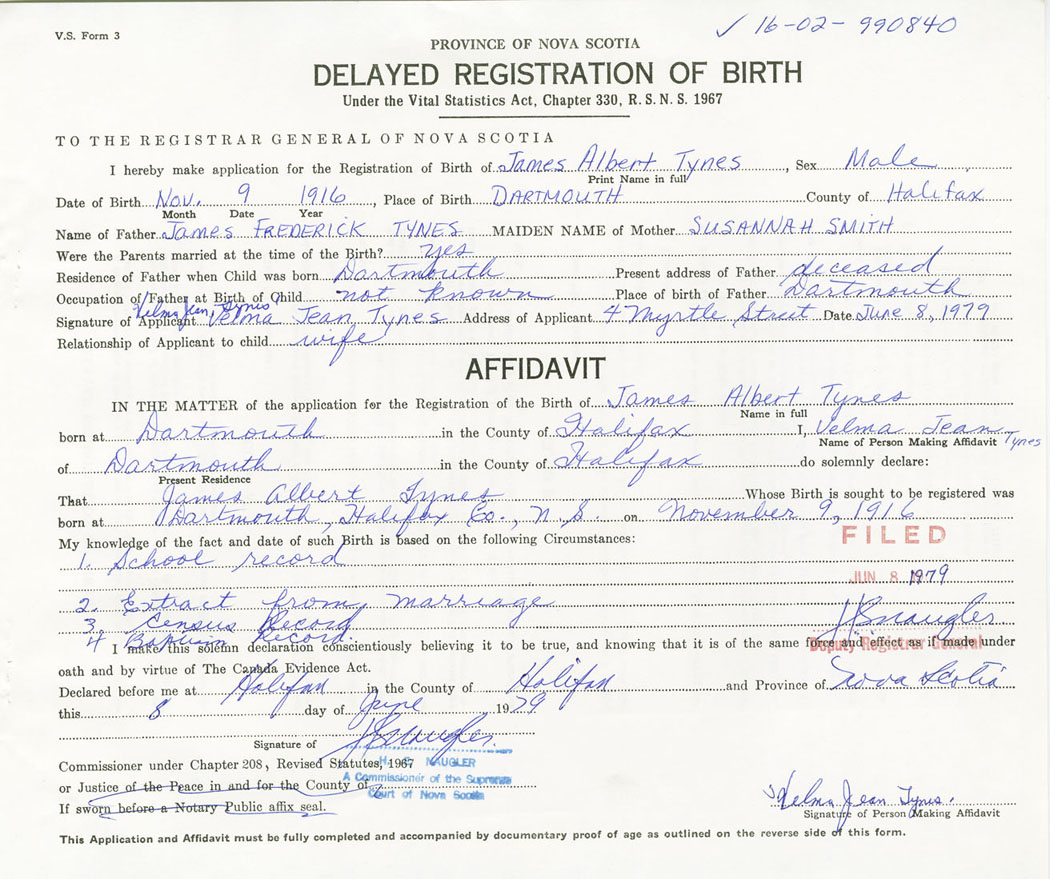 V.S. Form 3
✓ 16-02-990840
PROVINCE OF NOVA SCOTIA
DELAYED REGISTRATION OF BIRTH
Under the Vital Statistics Act, Chapter 330, R. S. N. S. 1967
TO THE REGISTRAR GENERAL OF NOVA SCOTIA
I hereby make application for the Registration of Birth of James Albert Tynes, Sex Male
Print Name in full
Date of Birth Nov. 9 1916, Place of Birth DARTMOUTH County of Halifax
Month Date Year
Name of Father James FREDERICK TYNES MAIDEN NAME of Mother SUSANNAH SMITH
Were the Parents married at the time of the Birth? yes
Residence of Father when Child was born Dartmouth Present address of Father deceased
Occupation of Father at Birth of Child not known Place of birth of Father Dartmouth
Velma Jean Tynes
Signature of Applicant Velma Jean Tynes Address of Applicant 4 Myrtle Street Date June 8, 1979
Relationship of Applicant to child wife
AFFIDAVIT
IN THE MATTER of the application for the Registration of the Birth of James Albert Tynes
Name in full
born at Dartmouth in the County of Halifax I, Velma Jean Tynes
Name of Person Making Affidavit
of Dartmouth in the County of Halifax do solemnly declare:
Present Residence
That James Albert Tynes Whose Birth is sought to be registered was
born at Dartmouth, Halifax Co., N.S. on November 9, 1916
My knowledge of the fact and date of such Birth is based on the following Circumstances:
FILED
1. School record
JUN 8 1979
2. Extract from marriage
3. Census Record
4 Baptism Record.
HSnaugler
Deputy Registrar General
I make this solemn declaration conscientiously believing it to be true, and knowing that it is of the same force and effect as if made under
oath and by virtue of The Canada Evidence Act.
Declared before me at Halifax in the County of Halifax and Province of Nova Scotia
this 8 day of June 1979
Signature of HSnaugler.
Commissioner under Chapter 208, Revised Statutes, 1967
NAUGLER
A Commissioner of the Supreme
Court of Nova Scotia
or Justice of the Peace in and for the County of
If sworn before a Notary Public affix seal.
Velma Jean Tynes.
Signature of Person Making Affidavit
This Application and Affidavit must be fully completed and accompanied by documentary proof of age as outlined on the reverse side of this form.